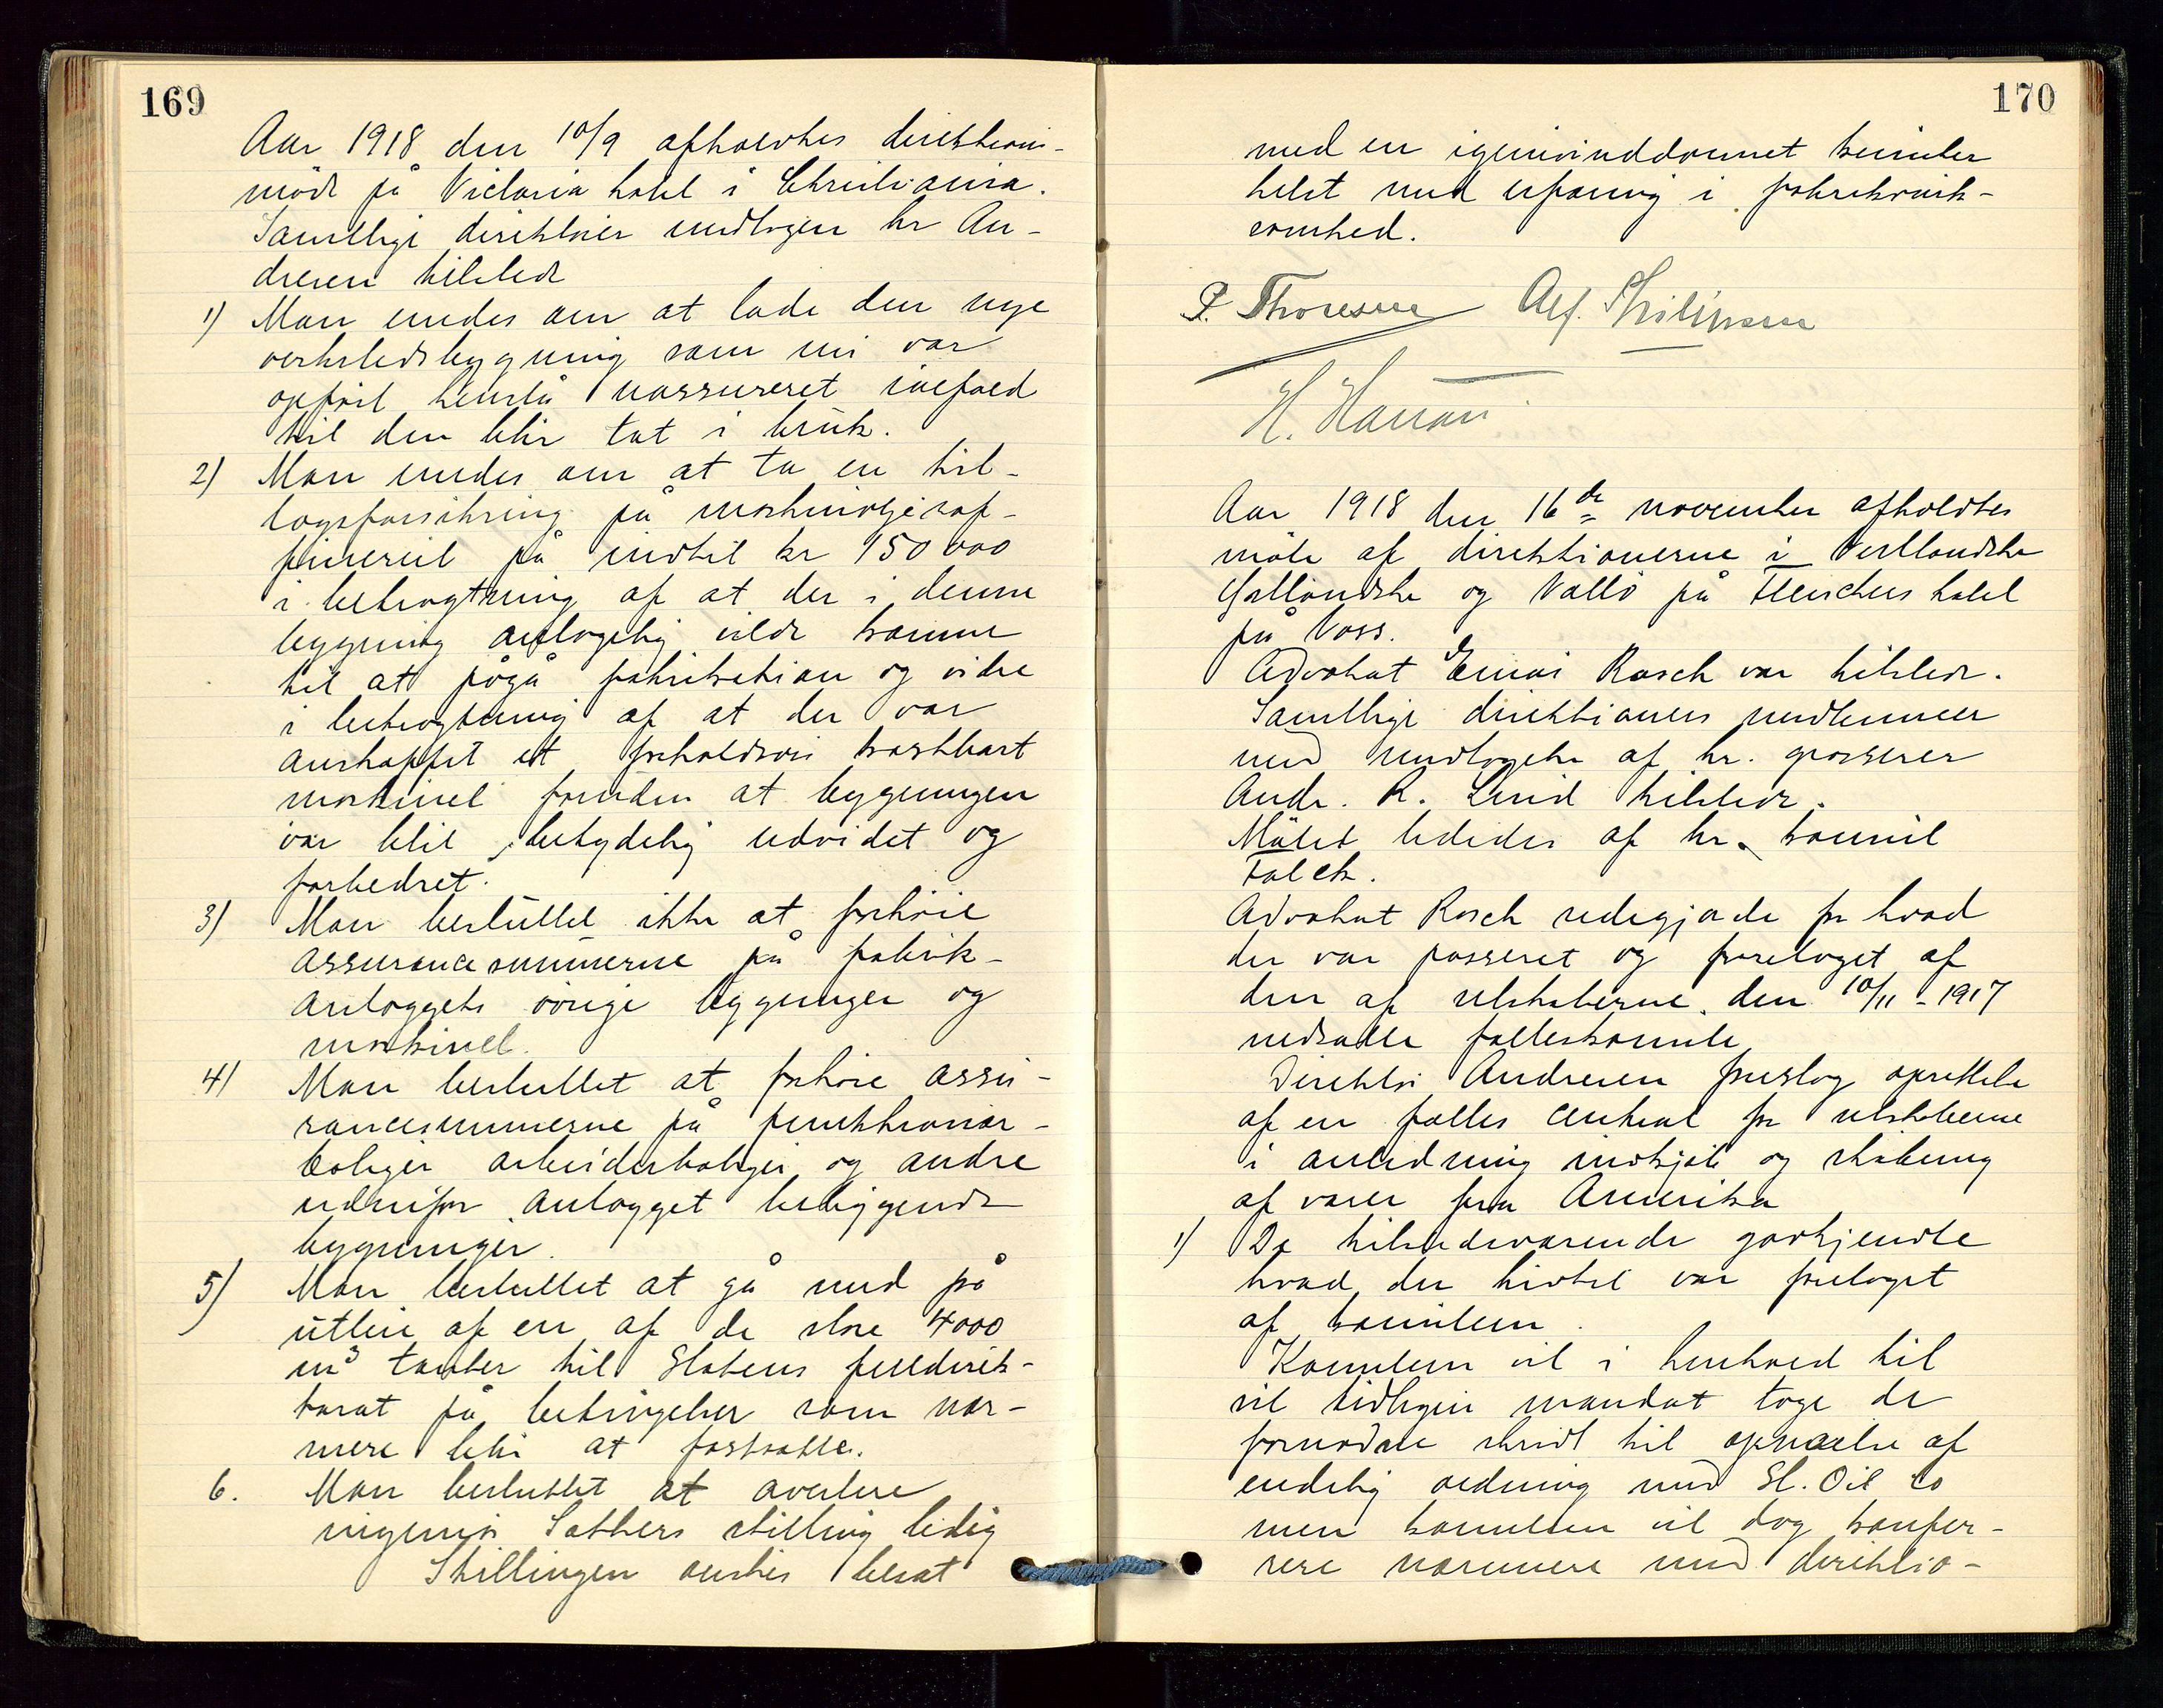 169
Aar 1918 den 10/9 afholdtes direktions-
möde på Victoria hotel i Christiania.
Samtlige direktører undtagen hr An-
dresen tilstede
1) Man enedes om at lade den nye
verkstedsbygning som nu var
opført henstå uassureret ialfald
til den blir tat i bruk.
2) Man enedes om at ta en til-
lægsforsikring på maskinoljeraf-
fineriet på indtil kr 150 000
i betragtning af at der i denne
bygning antagelig vilde komme
til at pågå fabrikation og videre
i betragtning af at der var
anskaffet et forholdsvis kostbart
maskineri foruden at bygningen
var blit betydelig udvidet og
forbedret.
3) Man besluttet ikke at forhöie
assurancesummerne på fabrik-
anlæggets övrige bygninger og
maskineri.
4) Man besluttet at forhöie assu-
rancesummerne på funktionær-
boliger arbeiderboliger og andre
udenfor anlægget beliggende
bygninger.
5) Man besluttet at gå med på
utleie af en af de store 4000
m³ tanker til Statens fueldirek-
torat på betingelser som nær-
mere blir at fastsætte.
6. Man besluttet at avertere
ingeniör Sæthers stilling ledig
Stillingen ønskes besat
170
med en ingeniøruddannet kemiker
helst med erfaring i fabrikvirk-
somhed.
P. Thoresen Alf. Philipsen
H. Hansen
Aar 1918 den 16de november afholdtes
möte af direktionerne i Vestlandske
Østlandske og Vallö på Fleischers hotel
på Voss.
Advokat Einar Rasch var tilstede.
Samtlige direktioners medlemmer
med undtagelse af hr. grosserer
Andr. R. Lind tilstede.
Mötet lededes af hr. konsul
Falck.
Advokat Rasch redegjorde for hvad
der var passeret og foretaget af
den af selskaberne den 10/11 - 1917
nedsatte felleskomite
Direktör Andresen foreslog oprettelse
af en fælles central for selskaberne
i anledning indkjöb og skibning
af varer fra Amerika
1) De tilstedeværende godkjendte
hvad der hidtil var foretaget
af komiteen.
Komiteen vil i henhold til
sit tidligere mandat tage de
fornødne skridt til opnaaelse af
endelig ordning med St. Oil Co
men komiteen vil dog konfer-
rere nærmere med direktio-